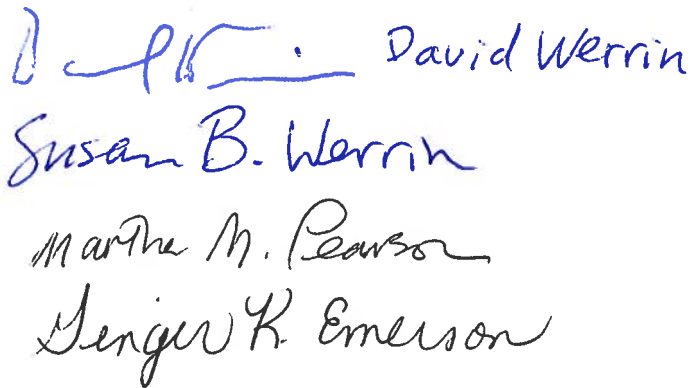 David Werrin David Werrin
Susan B. Werrin
Martha M. Pearson
Ginger K. Emerson